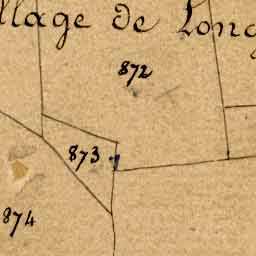 llage de Long
872
873
874